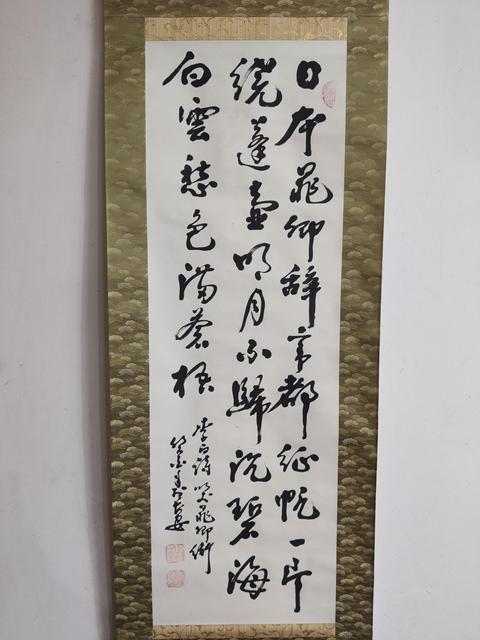 日本晁卿辞帝都征帆一片
繞蓬壺明月不歸沉碧海
白雲愁色滿蒼梧
李白詩哭晁卿衡